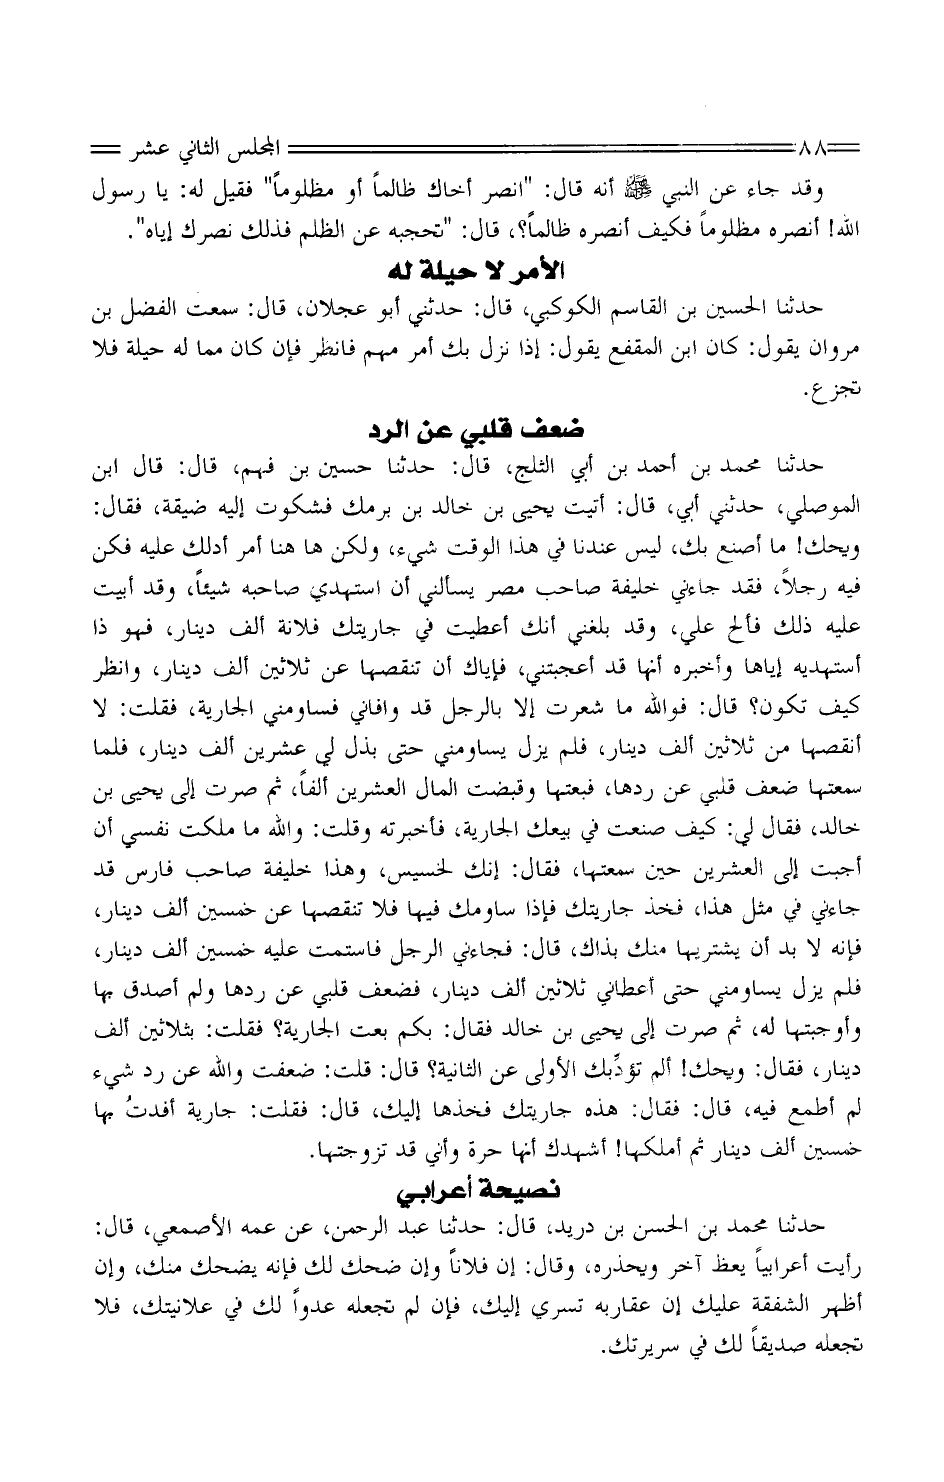 ٨٨ المجلس الثاني عشر
وقد جاء عن النبي ﷺ أنه قال: "انصر أخاك ظالماً أو مظلوماً" فقيل له: يا رسول
الله! أنصره مظلوماً فكيف أنصره ظالماً؟، قال: "تحجبه عن الظلم فذلك نصرك إياه".
الأمر لا حيلة له
حدثنا الحسين بن القاسم الكوكبي، قال: حدثني أبو عجلان، قال: سمعت الفضل بن
مروان يقول: كان ابن المقفع يقول: إذا نزل بك أمر مهم فانظر فإن كان مما له حيلة فلا
تجزع.
ضعف قلبي عن الرد
حدثنا محمد بن أحمد بن أبي الثلج، قال: حدثنا حسين بن فهم، قال: قال ابن
الموصلي، حدثني أبي، قال: أتيت يحيى بن خالد بن برمك فشكوت إليه ضيقة، فقال:
ويحك! ما أصنع بك، ليس عندنا في هذا الوقت شيء، ولكن ها هنا أمر أدلك عليه فكن
فيه رجلاً، فقد جاءني خليفة صاحب مصر يسألني أن استهدي صاحبه شيئاً، وقد أبيت
عليه ذلك فألح علي، وقد بلغني أنك أعطيت في جاريتك فلانة ألف دينار، فهو ذا
أستهديه إياها وأخبره أنها قد أعجبتني، فإياك أن تنقصها عن ثلاثين ألف دينار، وانظر
كيف تكون؟ قال: فوالله ما شعرت إلا بالرجل قد وافاني فساومني الجارية، فقلت: لا
أنقصها من ثلاثين ألف دينار، فلم يزل يساومني حتى بذل لي عشرين ألف دينار، فلما
سمعتها ضعف قلبي عن ردها، فبعتها وقبضت المال العشرين ألفاً، ثم صرت إلى يحيى بن
خالد، فقال لي: كيف صنعت في بيعك الجارية، فأخبرته وقلت: والله ما ملكت نفسي أن
أجبت إلى العشرين حين سمعتها، فقال: إنك لخسيس، وهذا خليفة صاحب فارس قد
جاءني في مثل هذا، فخذ جاريتك فإذا ساومك فيها فلا تنقصها عن خمسين ألف دينار،
فإنه لا بد أن يشتريها منك بذاك، قال: فجاءني الرجل فاستمت عليه خمسين ألف دينار،
فلم يزل يساومني حتى أعطاني ثلاثين ألف دينار، فضعف قلبي عن ردها ولم أصدق بها
وأوجبتها له، ثم صرت إلى يحيى بن خالد فقال: بكم بعت الجارية؟ فقلت: بثلاثين ألف
دينار، فقال: ويحك! ألم تؤدِّبك الأولى عن الثانية؟ قال: قلت: ضعفت والله عن رد شيء
لم أطمع فيه، قال: فقال: هذه جاريتك فخذها إليك، قال: فقلت: جارية أفدتُ بها
خمسين ألف دينار ثم أملكها! أشهدك أنها حرة وأني قد تزوجتها.
نصيحة أعرابي
حدثنا محمد بن الحسن بن دريد، قال: حدثنا عبد الرحمن، عن عمه الأصمعي، قال:
رأيت أعرابياً يعظ آخر ويحذره، وقال: إن فلاناً وإن ضحك لك فإنه يضحك منك، وإن
أظهر الشفقة عليك إن عقاربه تسري إليك، فإن لم تجعله عدواً لك في علانيتك، فلا
تجعله صديقاً لك في سريرتك.